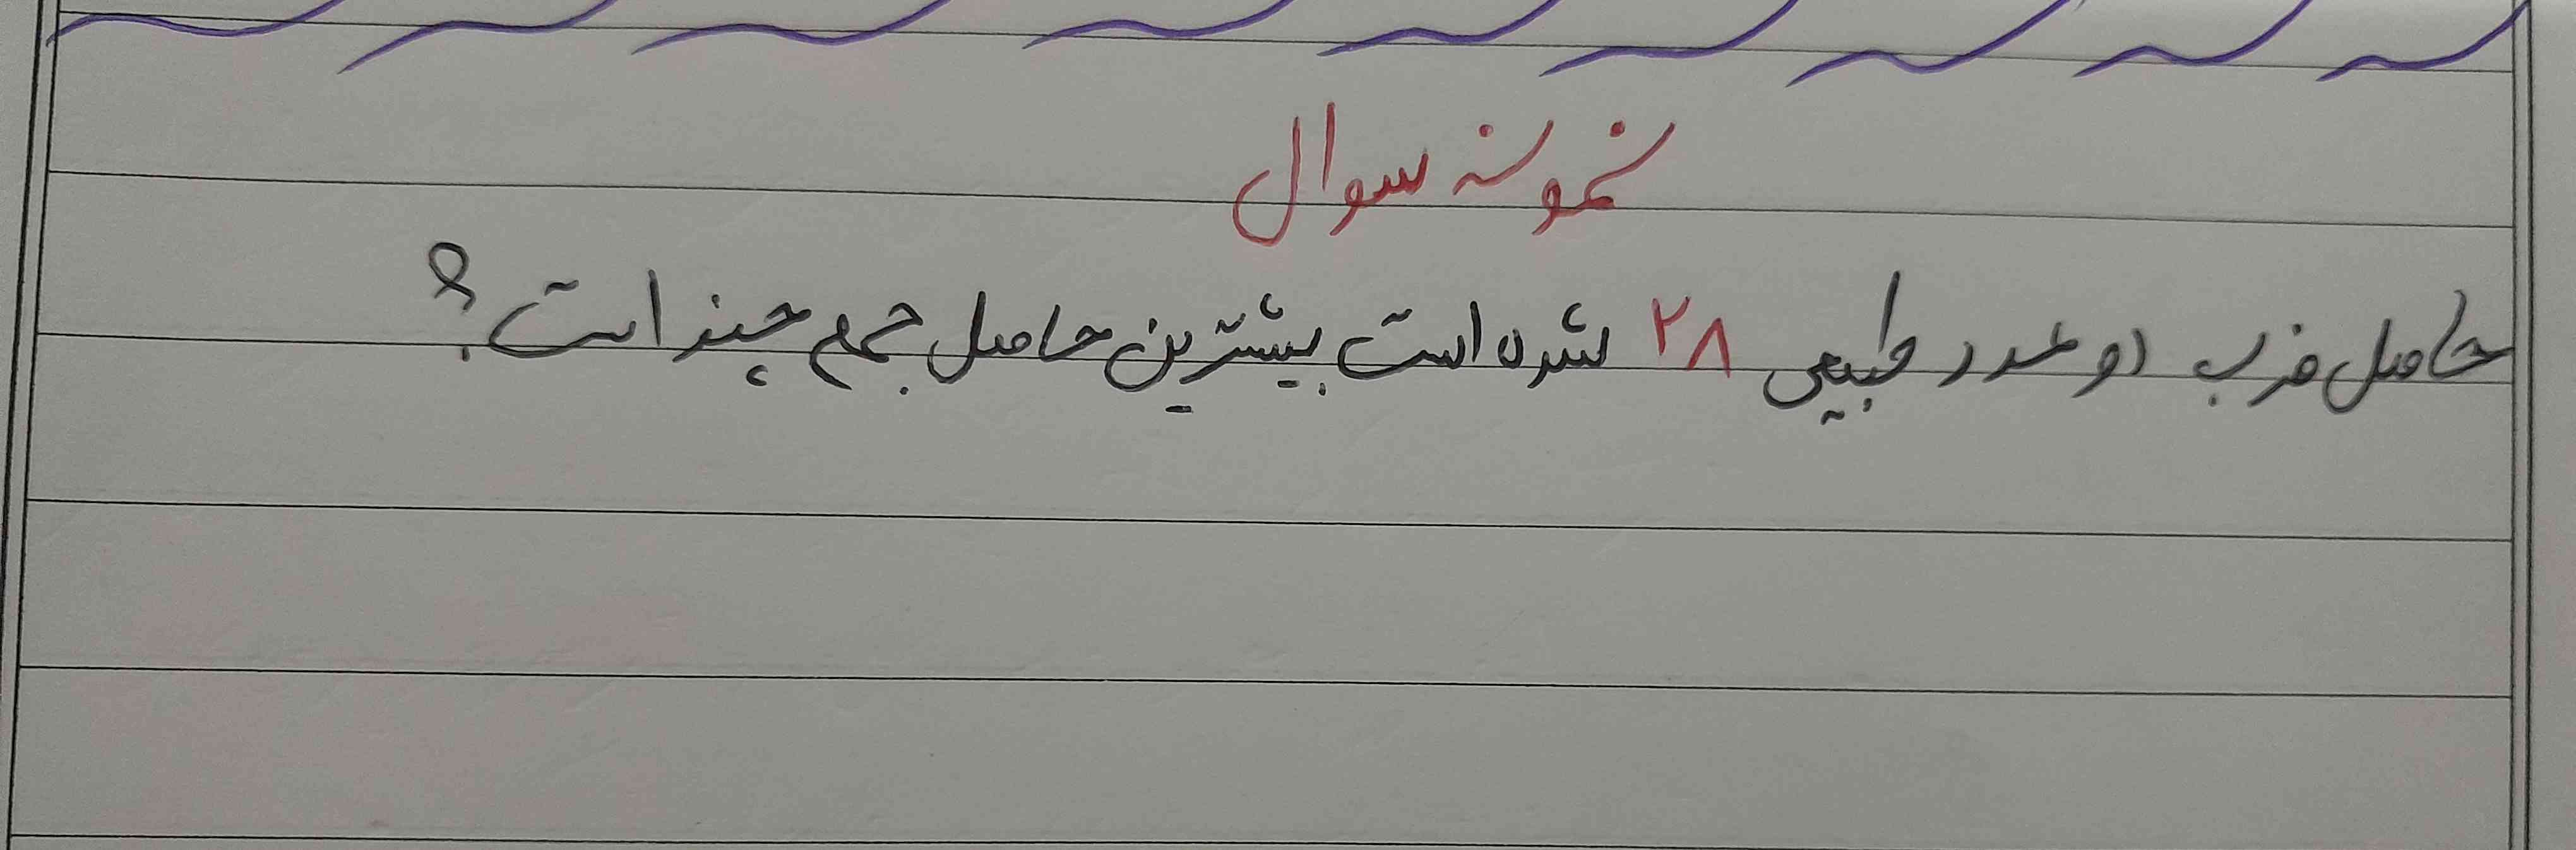 نمونه سوال
حاصل ضرب دو عدد طبیعی ۲۸ شده است بیشترین حاصل جمع چند است؟